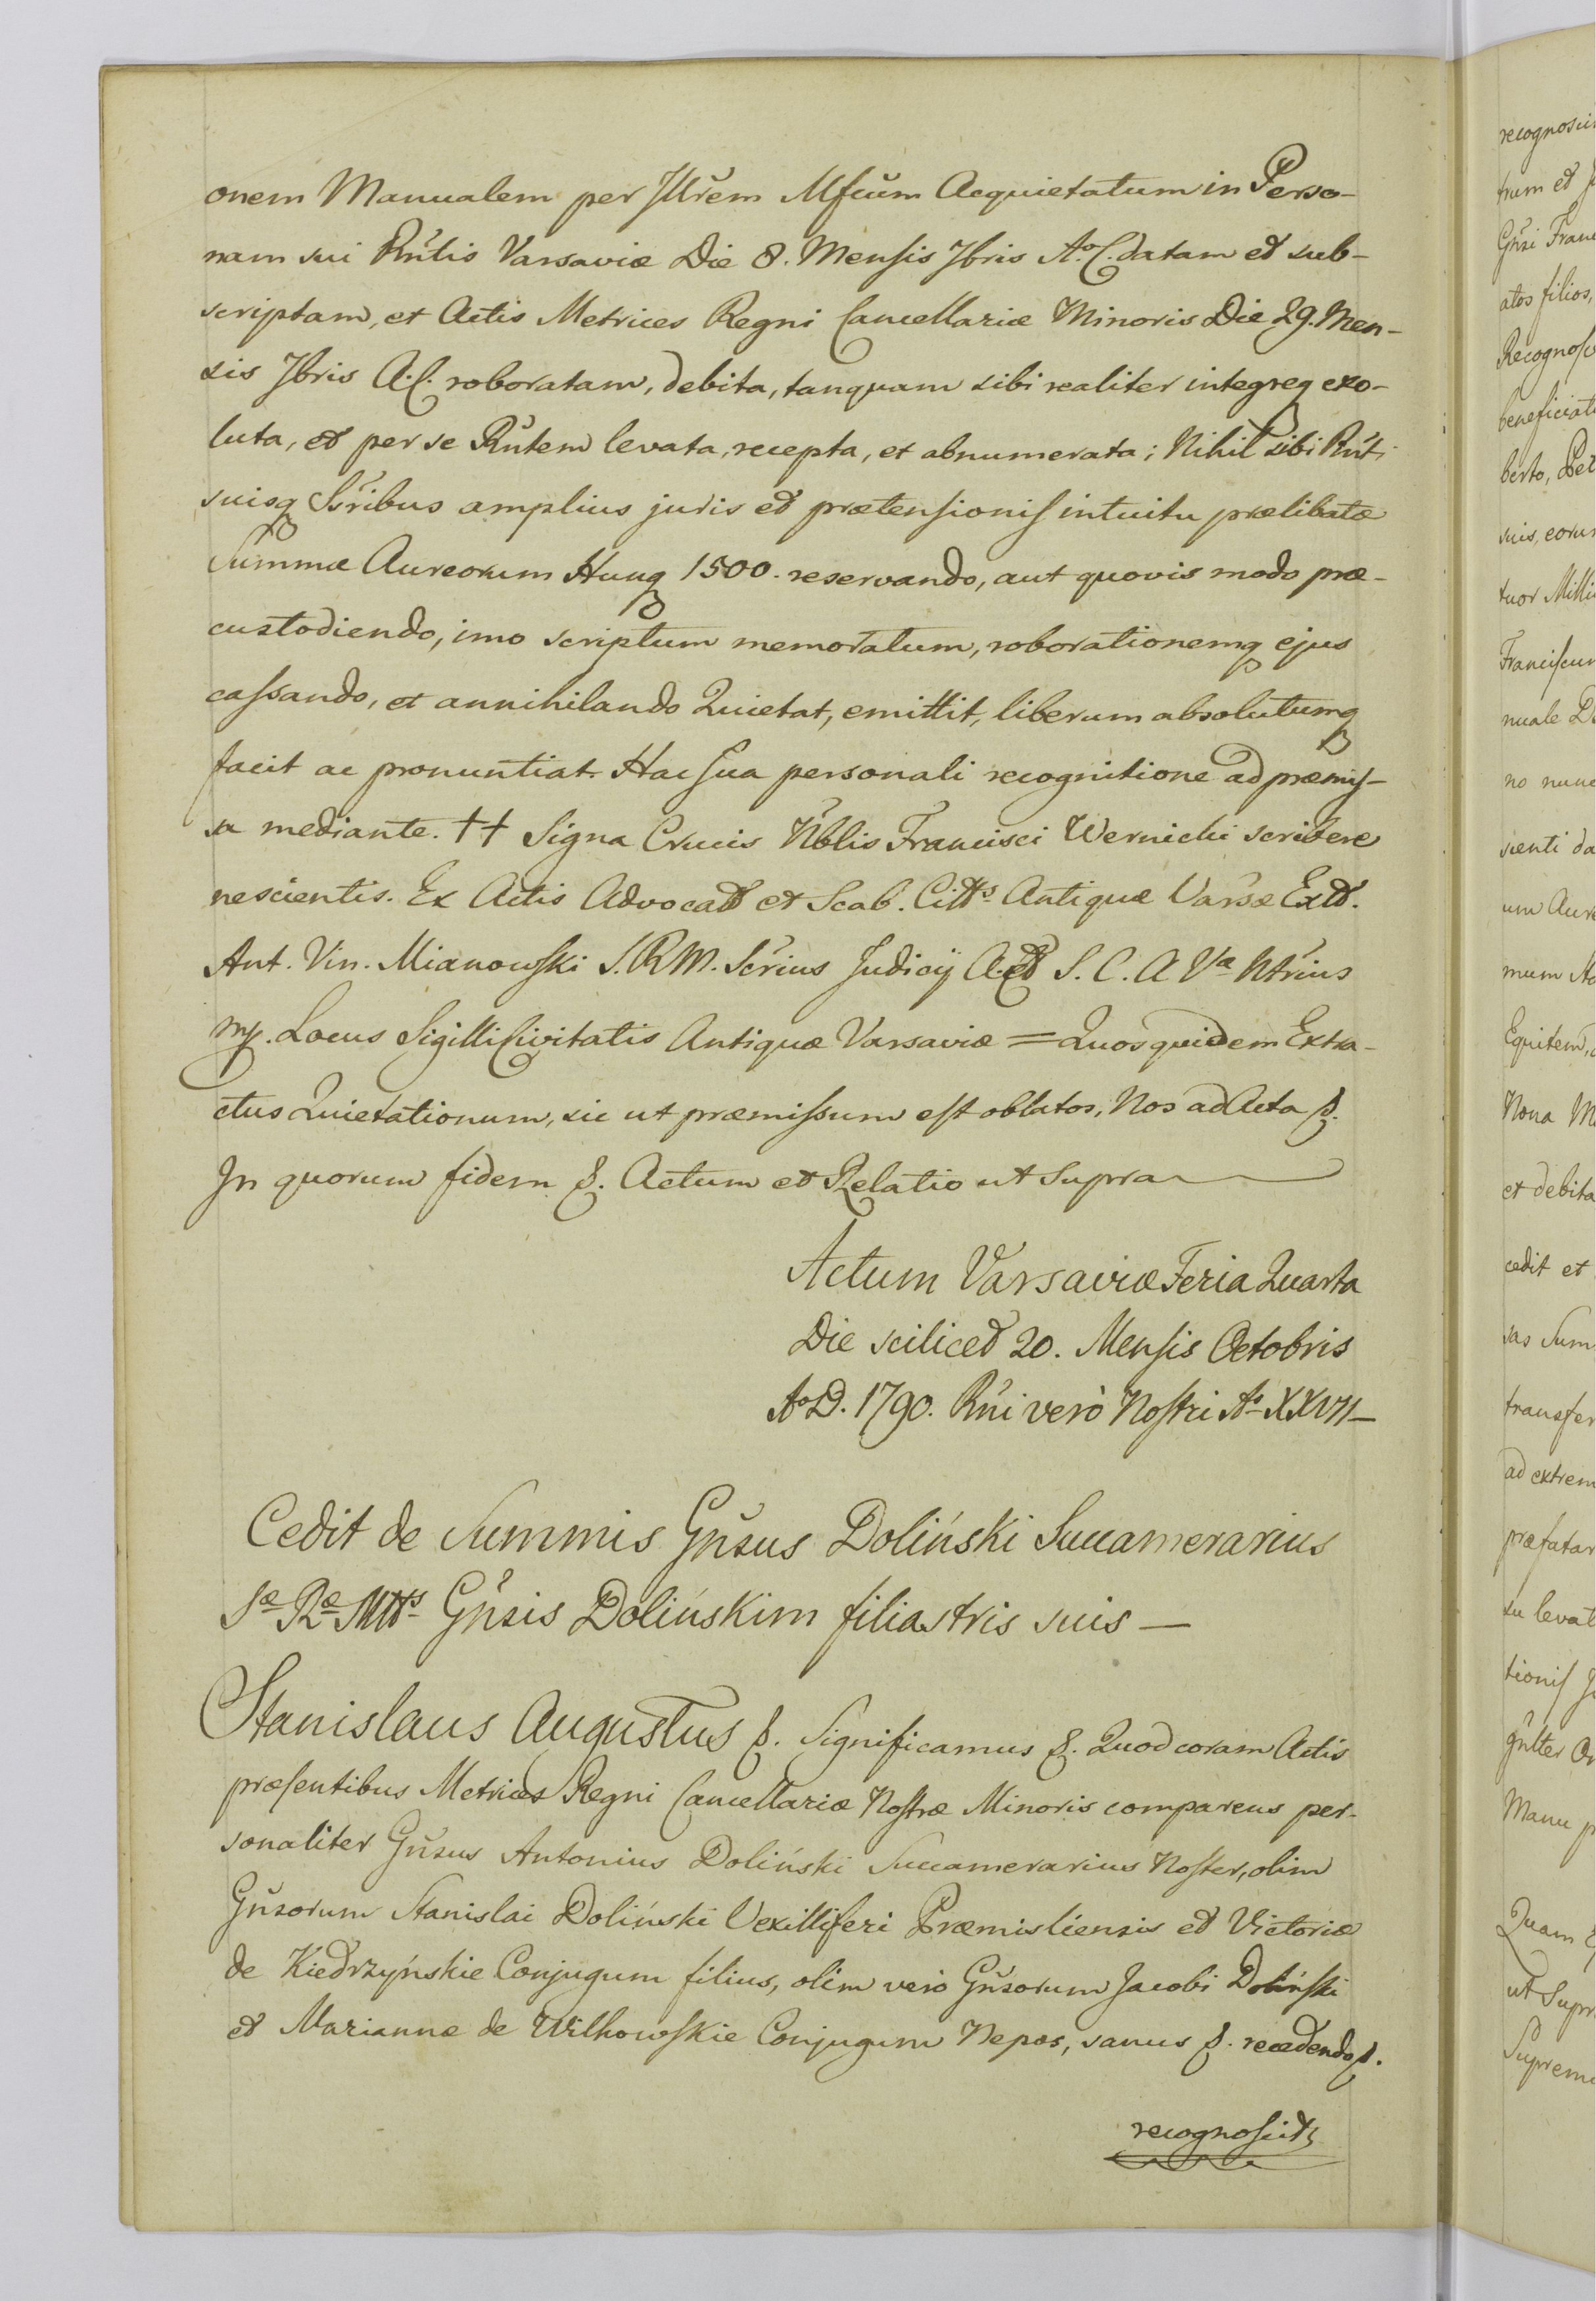 onem Manualem per Jllrem Mfcum Acquietatum in Perso-
nam sui Rntis Varsaviæ Die 8. Mensis Jbris Ao. C. datam et sub-
scriptam, et Actis Metrices Regni Cancellariæ Minoris Die 29. Men-
sis Jbris A. C. roboratam, debita, tanquam sibi realiter integreq exo-
luta, et per se Rntem levata, recepta, et abnumerata; Nihil sibi Rnti
suisq Ssribus amplius juris et prætensionis intuitu prælibatæ
Summæ Aureorum Hung 1500. reservando, aut quovis modo præ-
custodiendo, imo scriptum memoratum, roborationemq ejus
cassando, et annihilando Quietat, emittit, liberum absolutumq
facit ac pronuntiat. Hac sua personali recognitione ad præmis-
sa mediante. †† Signa Crucis Nblis Francisci Wernicki scribere
nescientis. Ex Actis Advocatt et Scab. Citts Antiquæ Varsæ Extt.
Ant. Vin. Mianowski S. R. M. Scrius Judicij A. et S. C. A Va Ntrius
mp. Locus Sigilli Civitatis Antiquæ Varsaviæ = Quos quidem Extra-
ctus Quietationum, sic ut præmissum est oblatos, Nos ad Acta p.
In quorum fidem p. Actum et Relatio ut supra
Actum Varsaviæ Feria Quarta
Die scilicet 20. Mensis Octobris
Ao D. 1790. Rni verò Nostri Ao XXVII
Cedit de Summis Gnsus Doliński Succamerarius
Sæ Ræ Mtts Gnsis Dolińskim filiastris suis —
Stanislaus Augustus p. Significamus p. Quod coram Actis
præsentibus Metrices Regni Cancellariæ Nostræ Minoris comparens per-
sonaliter Gnsus Antonius Doliński Succamerarius Noster, olim
Gnsorum Stanislai Doliński Vexilliferi Præmisliensis et Victoriæ
de Kiedrzyńskie Conjugum filius, olim vero Gnsorum Jacobi Doliński
et Mariannæ de Wilkowskie Conjugum Nepos, sanus p. recedendo p.
recognoscit